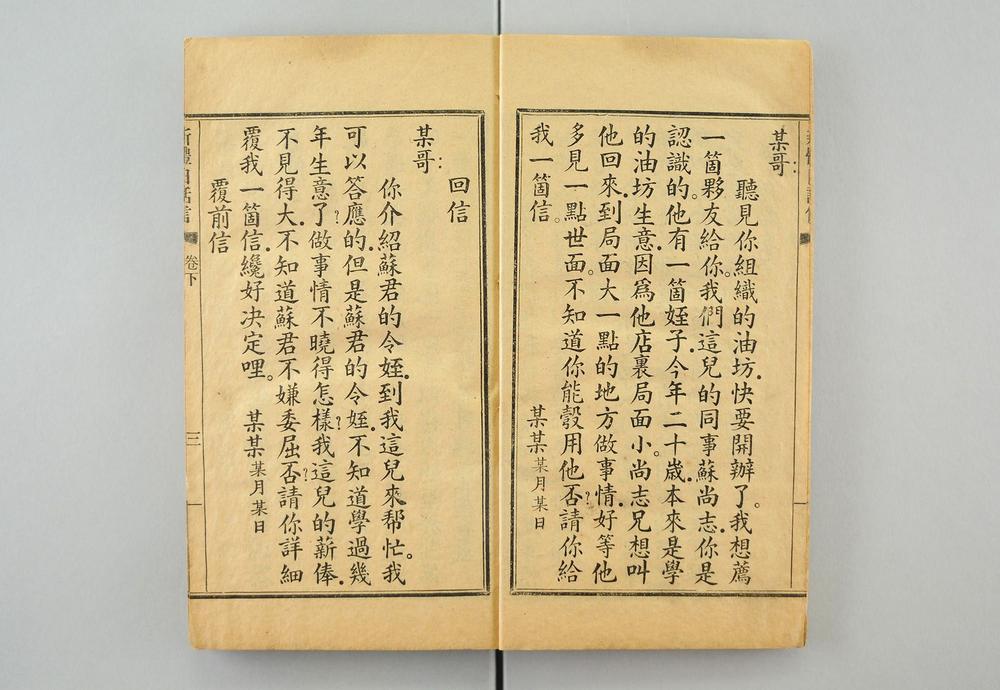 某哥:
聽見你組織的油坊.快要開辦了。我想薦
一箇夥友給你。我們這兒的同事蘇尚志.你是
認識的.他有一箇姪子.今年二十歲.本來是學
的油坊生意.因爲他店裏局面小。尚志兄想叫
他回來.到局面大一點的地方做事情.好等他
多見一點世面。不知道你能彀用他否?請你給
我一箇信。
某某某月某日
回信
某哥:
你介紹蘇君的令姪.到我這兒來帮忙。我
可以答應的.但是蘇君的令姪.不知道學過幾
年生意了?做事情不曉得怎樣?我這兒的薪俸.
不見得大.不知道蘇君不嫌委屈否?請你詳細
覆我一箇信.纔好决定哩。
某某某月某日
覆前信
新體白話信
卷下
三